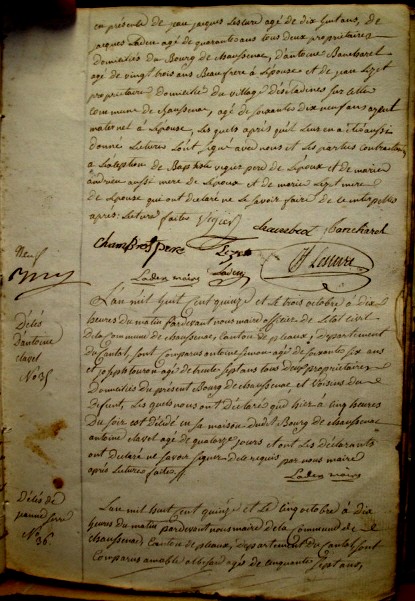 en présence de jean jacques Lescure agé de dix huit ans, de
jacques Ladeu agé de quarante ans tous deux propriétaires
domiciliés du Bourg de chaussenac, d'antoine Bancharel
agé de vingt trois ans Beaufrere a Lepouse et de jean Lizet
propriétaire domicilié du village sur cette
commune de chaussenac, agé de soixante dix neuf ans
maternel a Lepouse, Les quels après qu'il Leur en a été aussi
donné Lecture, L'ont signé avec nous et Les parties contractantes
a Lexception de Baptiste vigier pere de Lepoux et de marie
andrieu aussi mere de Lepoux et de marie mere
de Lepouse qui ont declaré ne Le savoir faire de ce interpellés
apres Lecture faite vigier
Bancharel
Lizet
Lescure
Ladeu maire Ladeu
Neuf
Décès
d'antoine
clavel
No 35
L'an mil huit cent quinze et Le trois octobre a dix
heures du matin pardevant nous maire officier de L'etat civil
de La commune de chaussenac, Canton de pleaux, departement
du Cantal, sont comparus antoine agé de soixante six ans
et joseph agé de trente sept ans tous deux propriétaires
domiciliés du présent Bourg de chaussenac et voisins du
defunt, Les quels nous ont déclaré que hier a cinq heures
du soir est décédé en sa maison dudit Bourg de chaussenac
antoine clavel agé de quatorze jours et ont Les déclarants
ont declaré ne savoir signer de ce requis par nous maire
après Lecture faite
Ladeu maire
Décès de
jeanne
No 36.
L'an mil huit cent quinze et Le cinq octobre a dix
heures du matin pardevant nous maire de la commune de
chaussenac, Canton de pleaux, departement du Cantal sont
Comparus amable agés de cinquante sept ans,